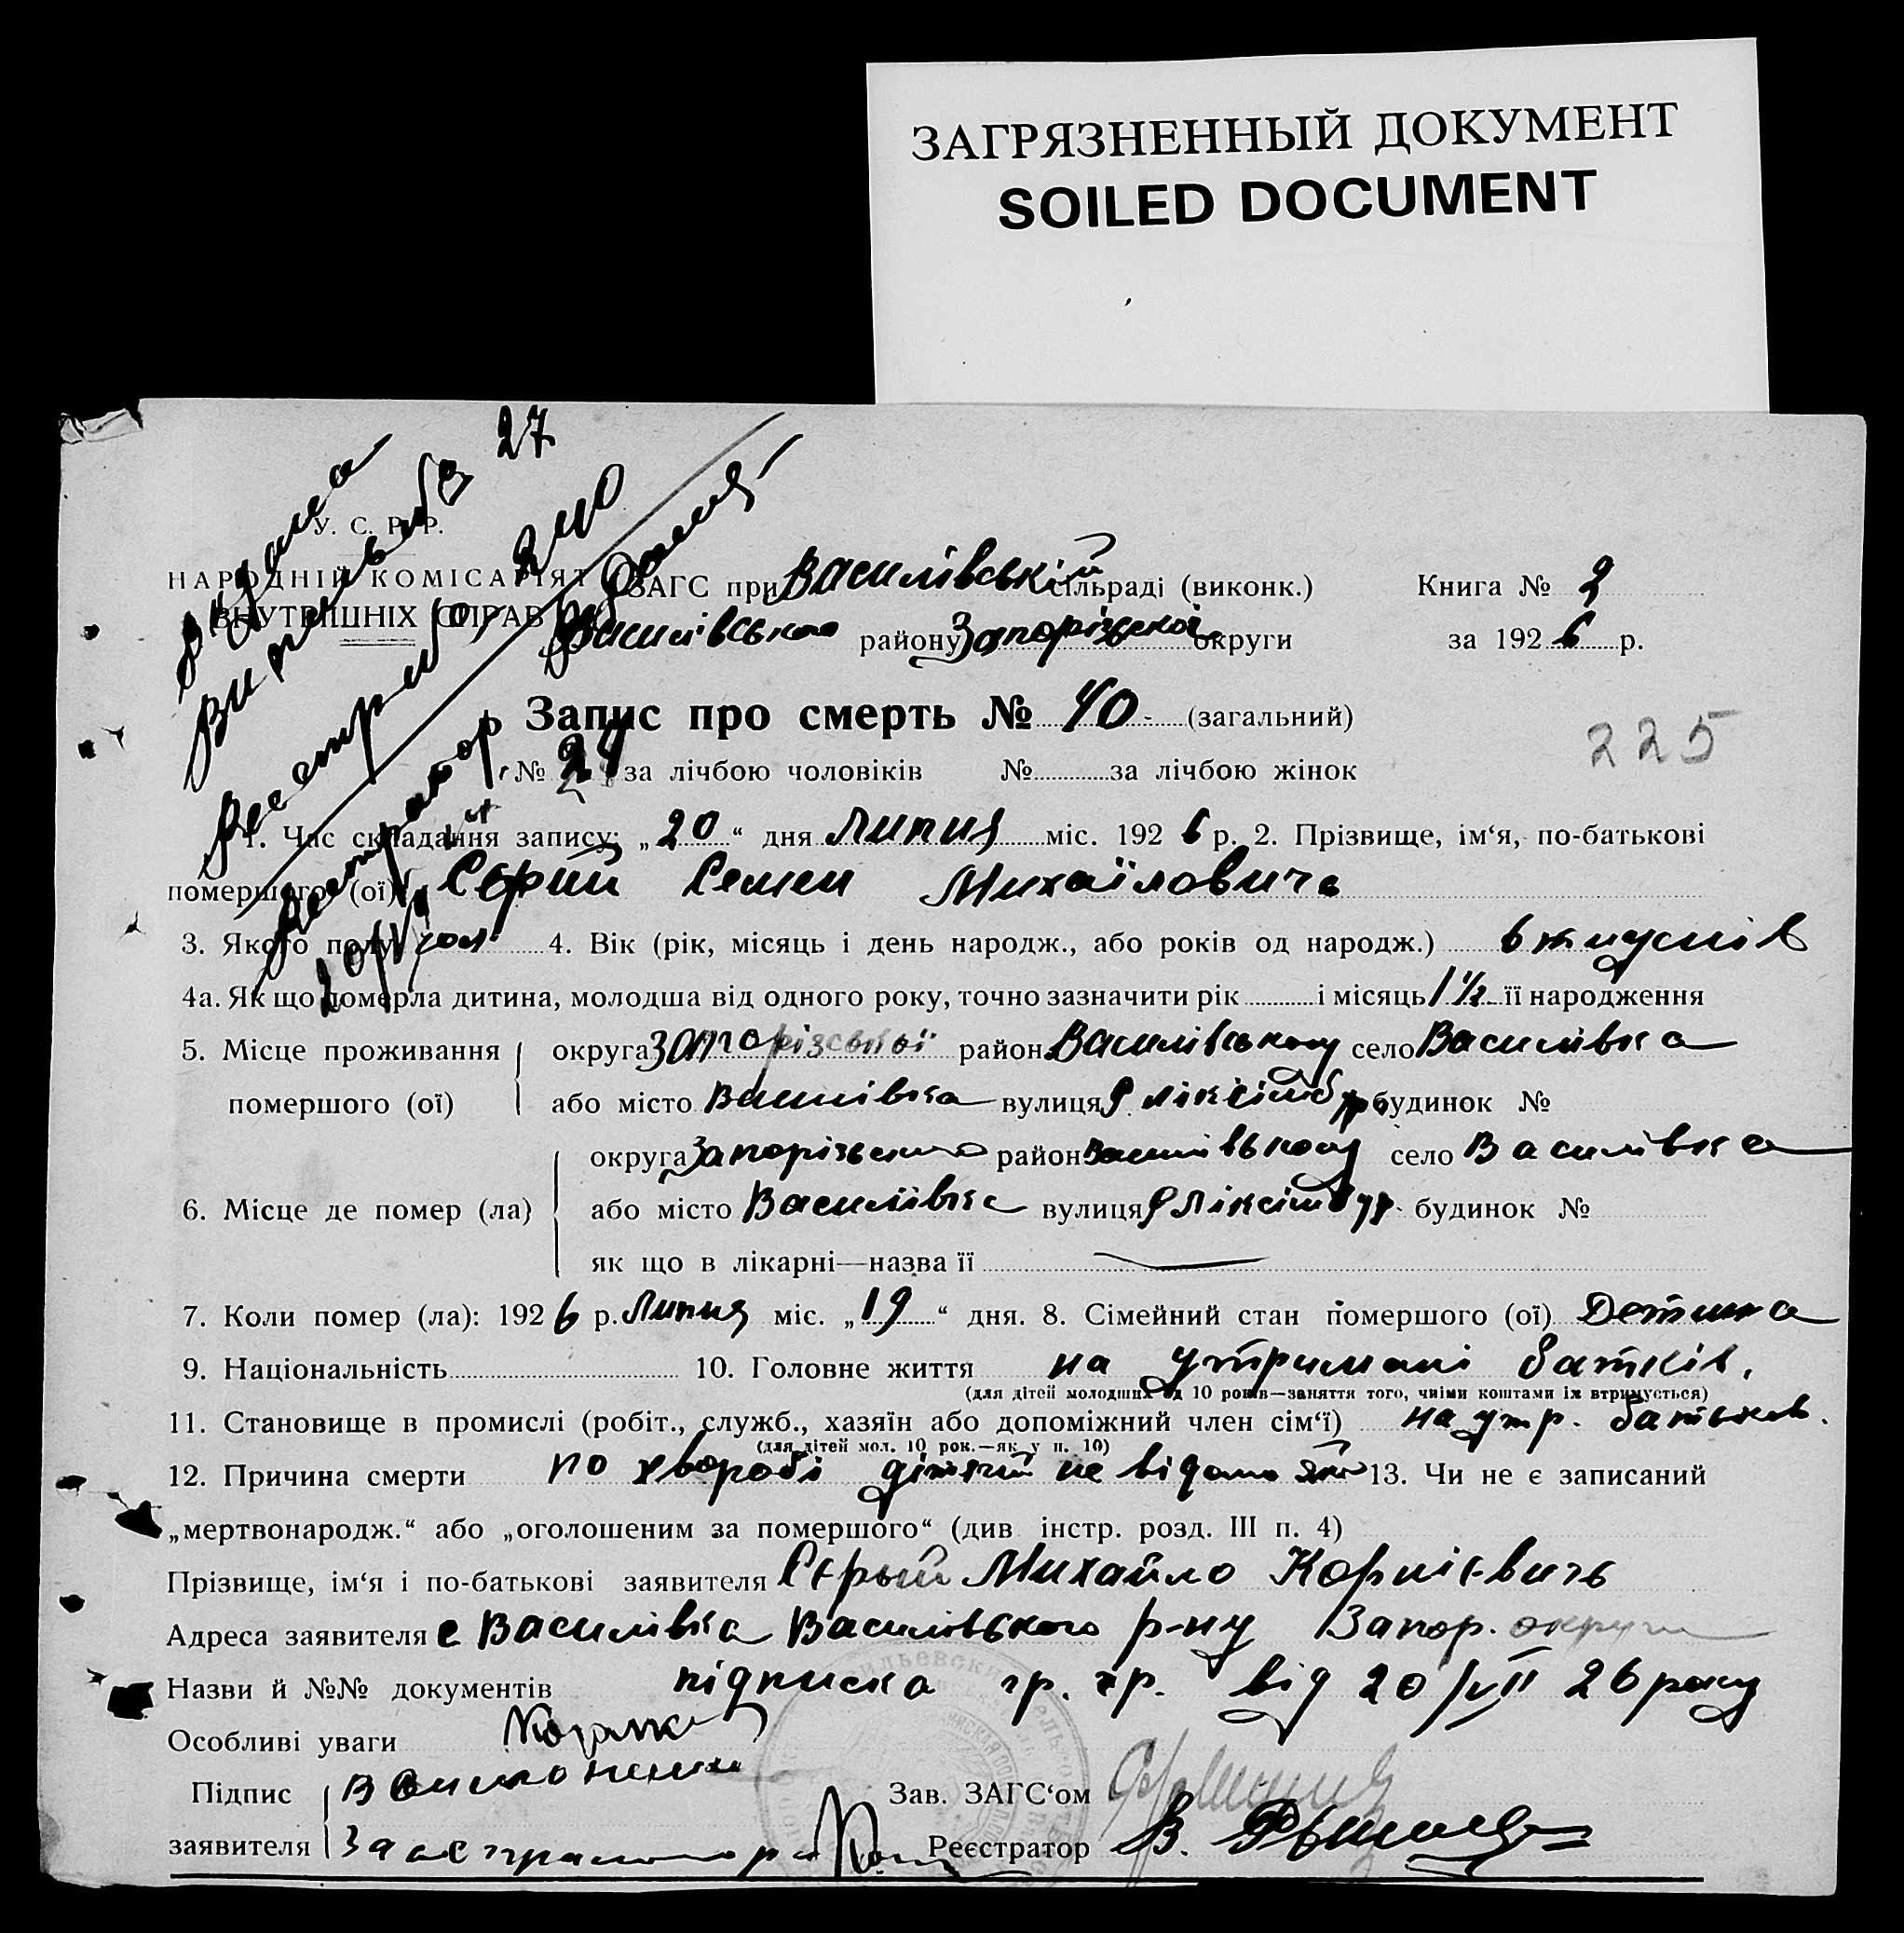 ЗАГРЯЗНЕННЫЙ ДОКУМЕНТ
SOILED DOCUMENT
27
У. С. Р. Р.
НАРОДНІЙ КОМІСАРІЯТ
ВНУТРІШНІХ СПРАВ
ЗАГС при Василівській сільраді (виконк.) Книга № 2
Василівського району Запорізької округи за 1926 р.
Запис про смерть № 40 (загальний)
225
№ 24 за лічбою чоловіків № за лічбою жінок
1. Час складання запису: „20“ дня Липня міс. 1926 р. 2. Прізвище, ім‘я, по-батькові
помершого (ої) Сєрий Семен Михаїловичь
3. Якого полу чол. 4. Вік (рік, місяць і день народж., або років од народж.) 6 тижднів
4а. Як що померла дитина, молодша від одного року, точно зазначити рік і місяць 1 ½ її народження
5. Місце проживання помершого (ої)
округа Запорізської район Василівському село Василівка
або місто Василівка вулиця будинок №
6. Місце де помер (ла)
округа Запорізького район Василівському село Василівка
або місто Василівка вулиця будинок №
як що в лікарні—назва її —
7. Коли помер (ла): 1926 р. Липня міс. „19“ дня. 8. Сімейний стан помершого (ої) Детина
9. Національність 10. Головне життя на утримані батків.
(для дітей молодших од 10 років—заняття того, чиїми коштами їх втримується)
11. Становище в промислі (робіт., служб., хазяїн або допоміжний член сім‘ї) на утр. батьков.
(для дітей мол. 10 рок.—як у п. 10)
12. Причина смерти по хворобі не відомо 13. Чи не є записаний
„мертвонародж.“ або „оголошеним за помершого“ (див інстр. розд. III п. 4)
Прізвище, ім‘я і по-батькові заявителя Сєрый Михайло Корнієвичь
Адреса заявителя с Василівка Василівського р-ну Запор. округи
Назви й №№ документів підписка гр. гр. від 20/VII 26 року
Особливі уваги
Підпис заявителя
Зав. ЗАГС‘ом
Реєстратор В.